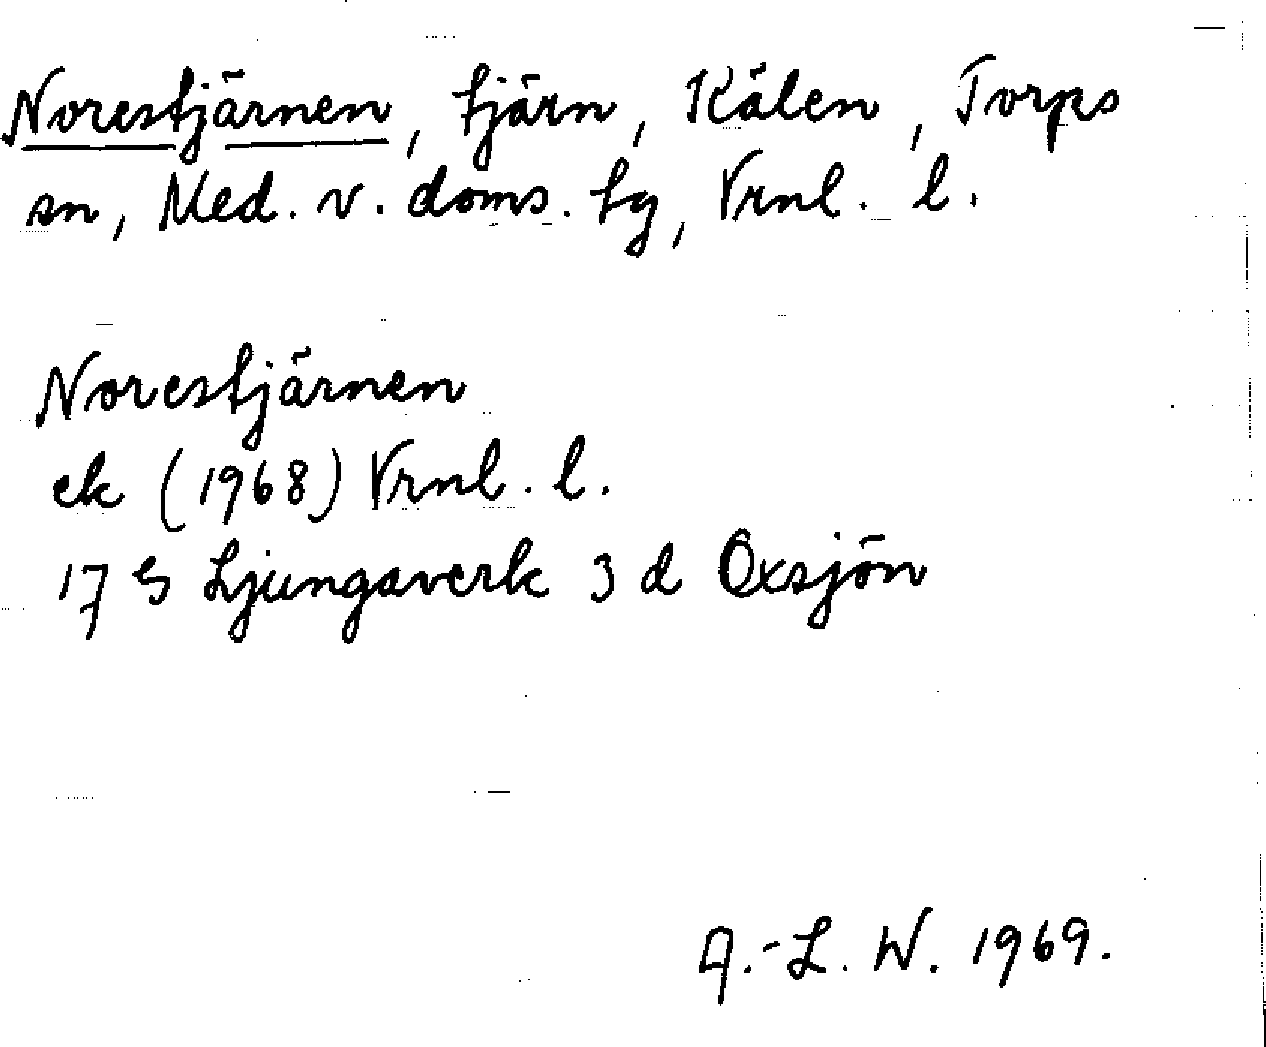 Norestjärnen, tjärn, Kälen, Torps
sn, Med. v. doms. tg, Vrnl. l.
Norestjärnen
ek (1968) Vrnl. l.
17 G Ljungaverk 3 d Oxsjön
A.-L. W. 1969.